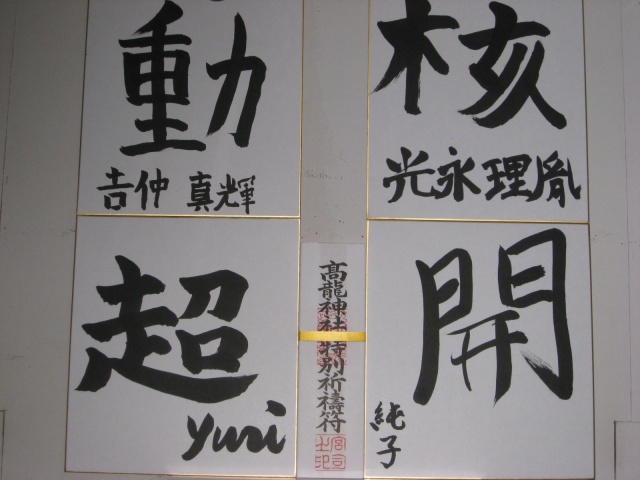 動
吉仲 真輝
核
光永理胤
超
yuri
高龍神社特別祈禱符
開
純子